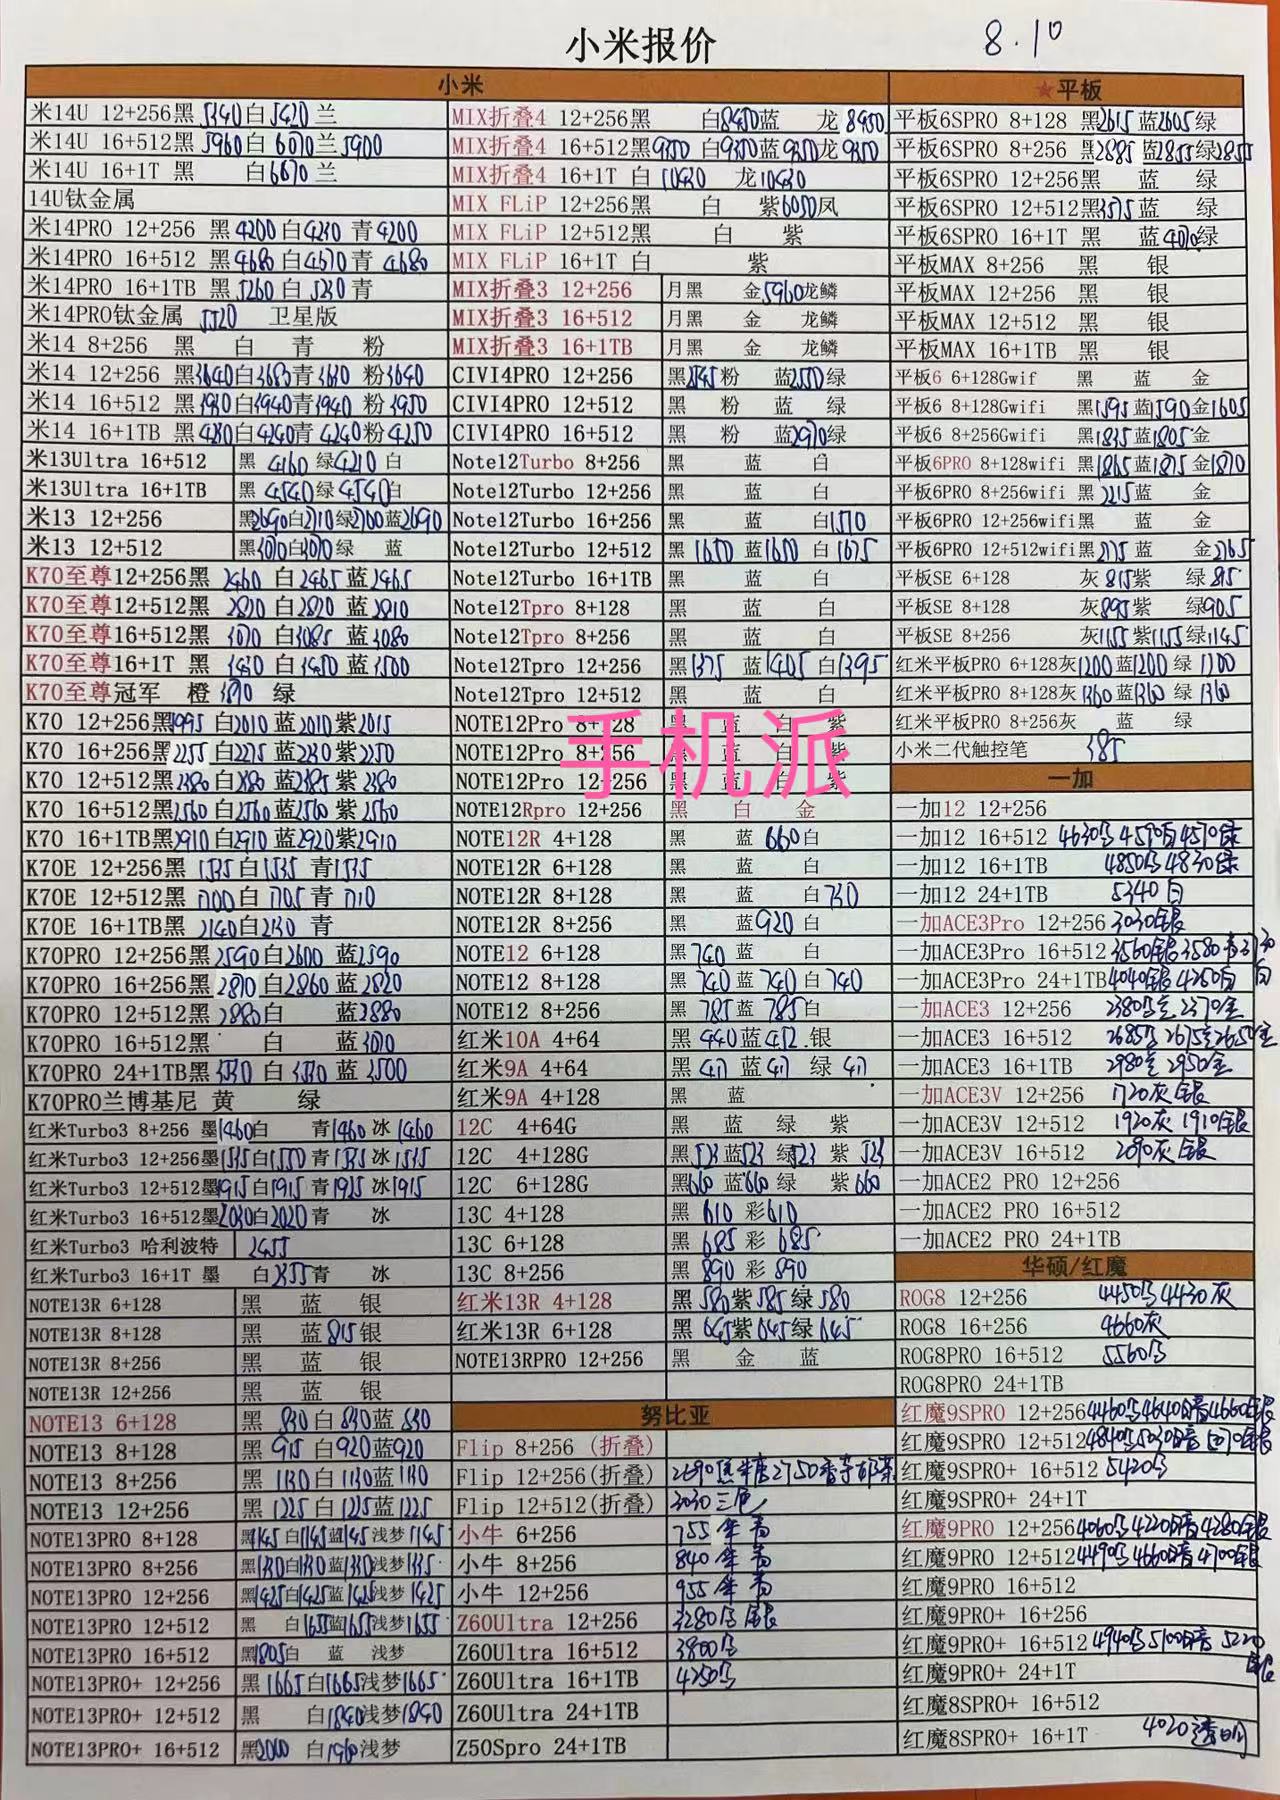 小米报价
8.10
小米
米14U 12+256黑 5340 白 5420 兰
米14U 16+512黑 5960 白 6070 兰 5900
米14U 16+1T 黑 白 6670 兰
14U钛金属
米14PRO 12+256 黑 4200 白 4230 青 4200
米14PRO 16+512 黑 4680 白 4670 青 4680
米14PRO 16+1TB 黑 5260 白 5230 青
米14PRO钛金属 5520 卫星版
米14 8+256 黑 白 青 粉
米14 12+256 黑3640白3683青3630 粉3640
米14 16+512 黑3930白3940青3940 粉3950
米14 16+1TB 黑4280白4240青4240粉4250
米13Ultra 16+512 黑 4160 绿4210 白
米13Ultra 16+1TB 黑 4540绿4540白
米13 12+256 黑2690白2710绿2700蓝2690
米13 12+512 黑3070白3070绿 蓝
K70至尊12+256黑 2460 白2465 蓝2465
K70至尊12+512黑 2820 白2820 蓝2810
K70至尊16+512黑 3070 白3085 蓝3080
K70至尊16+1T 黑 3430 白3450 蓝3500
K70至尊冠军 橙 3870 绿
K70 12+256黑1995 白2010 蓝2010紫2015
K70 16+256黑2255 白2275 蓝2230紫2250
K70 12+512黑2380白2380 蓝2385 紫2380
K70 16+512黑2560 白2560 蓝2560 紫2560
K70 16+1TB黑2910白2910 蓝2920紫2910
K70E 12+256黑 1535 白1535 青1535
K70E 12+512黑 1700 白1705 青 1710
K70E 16+1TB黑 2140白2130 青
K70PRO 12+256黑2590白2600 蓝2590
K70PRO 16+256黑 2870 白2860 蓝2820
K70PRO 12+512黑2880白 蓝2880
K70PRO 16+512黑 白 蓝3070
K70PRO 24+1TB黑3530 白 3530 蓝 3500
K70PRO兰博基尼 黄 绿
红米Turbo3 8+256 墨1460白 青1460 冰 1460
红米Turbo3 12+256墨1535白1550 青1535 冰1535
红米Turbo3 12+512墨1915白1915 青1925 冰1915
红米Turbo3 16+512墨2030白2020 青 冰
红米Turbo3 哈利波特 2455
红米Turbo3 16+1T 墨 白2355青 冰
NOTE13R 6+128 黑 蓝 银
NOTE13R 8+128 黑 蓝815银
NOTE13R 8+256 黑 蓝 银
NOTE13R 12+256 黑 蓝 银
NOTE13 6+128 黑 830 白 830蓝 830
NOTE13 8+128 黑 915 白920蓝920
NOTE13 8+256 黑 1130 白1130蓝1130
NOTE13 12+256 黑 1225 白1225蓝1225
NOTE13PRO 8+128 黑1145白1145蓝1145浅梦1145
NOTE13PRO 8+256 黑1330白1330蓝1330浅梦1335
NOTE13PRO 12+256 黑1425白1425蓝1425浅梦1425
NOTE13PRO 12+512 黑 白1655蓝1655浅梦1655
NOTE13PRO 16+512 黑1805白 蓝 浅梦
NOTE13PRO+ 12+256 黑 1665白1665浅梦1665
NOTE13PRO+ 12+512 黑 白1840浅梦1840
NOTE13PRO+ 16+512 黑2000 白1960浅梦
MIX折叠4 12+256黑 白8950蓝 龙 8950
MIX折叠4 16+512黑9350 白9350蓝9350龙9350
MIX折叠4 16+1T 白 10430 龙10430
MIX FLiP 12+256黑 白 紫6050凤
MIX FLiP 12+512黑 白 紫
MIX FLiP 16+1T 白 紫
MIX折叠3 12+256 月黑 金5960龙鳞
MIX折叠3 16+512 月黑 金 龙鳞
MIX折叠3 16+1TB 月黑 金 龙鳞
CIVI4PRO 12+256 黑2545粉 蓝2550绿
CIVI4PRO 12+512 黑 粉 蓝 绿
CIVI4PRO 16+512 黑 粉 蓝2970绿
Note12Turbo 8+256 黑 蓝 白
Note12Turbo 12+256 黑 蓝 白
Note12Turbo 16+256 黑 蓝 白1570
Note12Turbo 12+512 黑 1650 蓝1650 白 1675
Note12Turbo 16+1TB 黑 蓝 白
Note12Tpro 8+128 黑 蓝 白
Note12Tpro 8+256 黑 蓝 白
Note12Tpro 12+256 黑1375 蓝1405 白1395
Note12Tpro 12+512 黑 蓝 白
NOTE12Pro 8+128 黑 蓝 白 紫
NOTE12Pro 8+256 黑 蓝 白 紫
NOTE12Pro 12+256 黑 蓝 白 紫
NOTE12Rpro 12+256 黑 白 金
NOTE12R 4+128 黑 蓝 660白
NOTE12R 6+128 黑 蓝 白
NOTE12R 8+128 黑 蓝 白730
NOTE12R 8+256 黑 蓝920白
NOTE12 6+128 黑740 蓝 白
NOTE12 8+128 黑 740 蓝 740白 740
NOTE12 8+256 黑 785蓝 785白
红米10A 4+64 黑 440蓝452 银
红米9A 4+64 黑 417 蓝417 绿 417
红米9A 4+128 黑 蓝
12C 4+64G 黑 蓝 绿 紫
12C 4+128G 黑523蓝523 绿523 紫 523
12C 6+128G 黑660 蓝660绿 紫660
13C 4+128 黑 610 彩610
13C 6+128 黑 685 彩 685
13C 8+256 黑 890 彩 890
红米13R 4+128 黑 580紫585绿580
红米13R 6+128 黑 645紫645绿645
NOTE13RPRO 12+256 黑 金 蓝
努比亚
Flip 8+256 (折叠)
Flip 12+256(折叠) 2690焦牛唐2750香芋奶茶
Flip 12+512(折叠) 3030三色
小牛 6+256 755
小牛 8+256 840
小牛 12+256 955
Z60Ultra 12+256 3280乌 银
Z60Ultra 16+512 3800乌
Z60Ultra 16+1TB 4250乌
Z60Ultra 24+1TB
Z50Spro 24+1TB
★平板
平板6SPRO 8+128 黑2615 蓝2605绿
平板6SPRO 8+256 黑2885 蓝2855绿2855
平板6SPRO 12+256黑 蓝 绿
平板6SPRO 12+512黑3575蓝 绿
平板6SPRO 16+1T 黑 蓝4070绿
平板MAX 8+256 黑 银
平板MAX 12+256 黑 银
平板MAX 12+512 黑 银
平板MAX 16+1TB 黑 银
平板6 6+128Gwif 黑 蓝 金
平板6 8+128Gwifi 黑1595蓝1590金1605
平板6 8+256Gwifi 黑1835蓝1805金
平板6PRO 8+128wifi 黑1865蓝1875 金1870
平板6PRO 8+256wifi 黑 2215蓝 金
平板6PRO 12+256wifi黑 蓝 金
平板6PRO 12+512wifi黑2775 蓝 金2765
平板SE 6+128 灰 815紫 绿 815
平板SE 8+128 灰895紫 绿905
平板SE 8+256 灰1155 紫1155绿1145
红米平板PRO 6+128灰1200蓝1200 绿 1200
红米平板PRO 8+128灰1360蓝1360 绿 1360
红米平板PRO 8+256灰 蓝 绿
小米二代触控笔 385
一加
一加12 12+256
一加12 16+512 4630乌 4590白4570绿
一加12 16+1TB 4850乌 4830绿
一加12 24+1TB 5340 白
一加ACE3Pro 12+256 3030银
一加ACE3Pro 16+512 3560银3580青3730白
一加ACE3Pro 24+1TB4040银 4280白
一加ACE3 12+256 2380乌 2370金
一加ACE3 16+512 2685乌 2675 2650金
一加ACE3 16+1TB 2980 2950金
一加ACE3V 12+256 1720灰 银
一加ACE3V 12+512 1920灰 1910银
一加ACE3V 16+512 2090灰 银
一加ACE2 PRO 12+256
一加ACE2 PRO 16+512
一加ACE2 PRO 24+1TB
华硕/红魔
ROG8 12+256 4450乌 4430灰
ROG8 16+256 4660灰
ROG8PRO 16+512 5560乌
ROG8PRO 24+1TB
红魔9SPRO 12+256 4460乌4640暗4660银
红魔9SPRO 12+512 4840乌5030暗 银
红魔9SPRO+ 16+512 5420乌
红魔9SPRO+ 24+1T
红魔9PRO 12+256 4060乌4220暗4280银
红魔9PRO 12+512 4490乌4660暗4700银
红魔9PRO 16+512
红魔9PRO+ 16+256
红魔9PRO+ 16+512 4940乌5100暗 5220银
红魔9PRO+ 24+1T
红魔8SPRO+ 16+512
红魔8SPRO+ 16+1T 4020透明
手机派